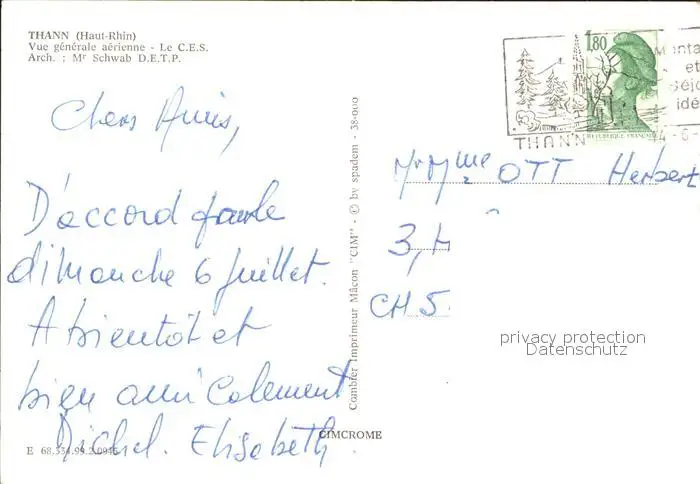 THANN (Haut-Rhin)
Vue générale aérienne - Le C.E.S.
Arch. : Mr Schwab D.E.T.P.
1,80
REPUBLIQUE FRANÇAISE
THANN
Monta
et
Séjo
idé
14-6-
Chers Amis,
D'accord pour le
dimanche 6 juillet.
A bientôt et
bien amicalement
Michel. Elisabeth
Mr Mme OTT Herbert
3,
CH 5
privacy protection
Datenschutz
Combier Imprimeur Mâcon "CIM" - © by spadem - 38-000
CIMCROME
E 68.334.99.2.0945